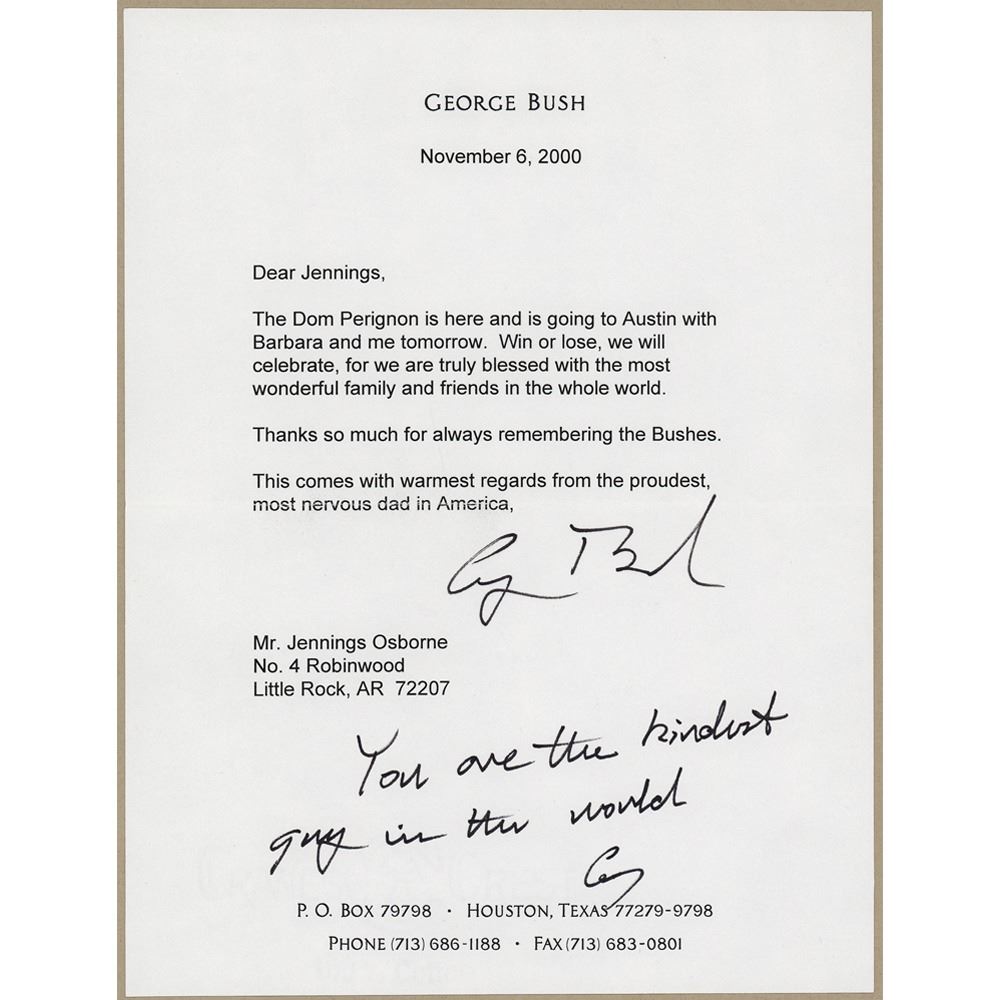 GEORGE BUSH
November 6, 2000
Dear Jennings,
The Dom Perignon is here and is going to Austin with
Barbara and me tomorrow.  Win or lose, we will
celebrate, for we are truly blessed with the most
wonderful family and friends in the whole world.
Thanks so much for always remembering the Bushes.
This comes with warmest regards from the proudest,
most nervous dad in America,
Mr. Jennings Osborne
No. 4 Robinwood
Little Rock, AR  72207
You are the kindest
guy in the world
P. O. BOX 79798 · HOUSTON, TEXAS 77279-9798
PHONE (713) 686-1188 · FAX (713) 683-0801